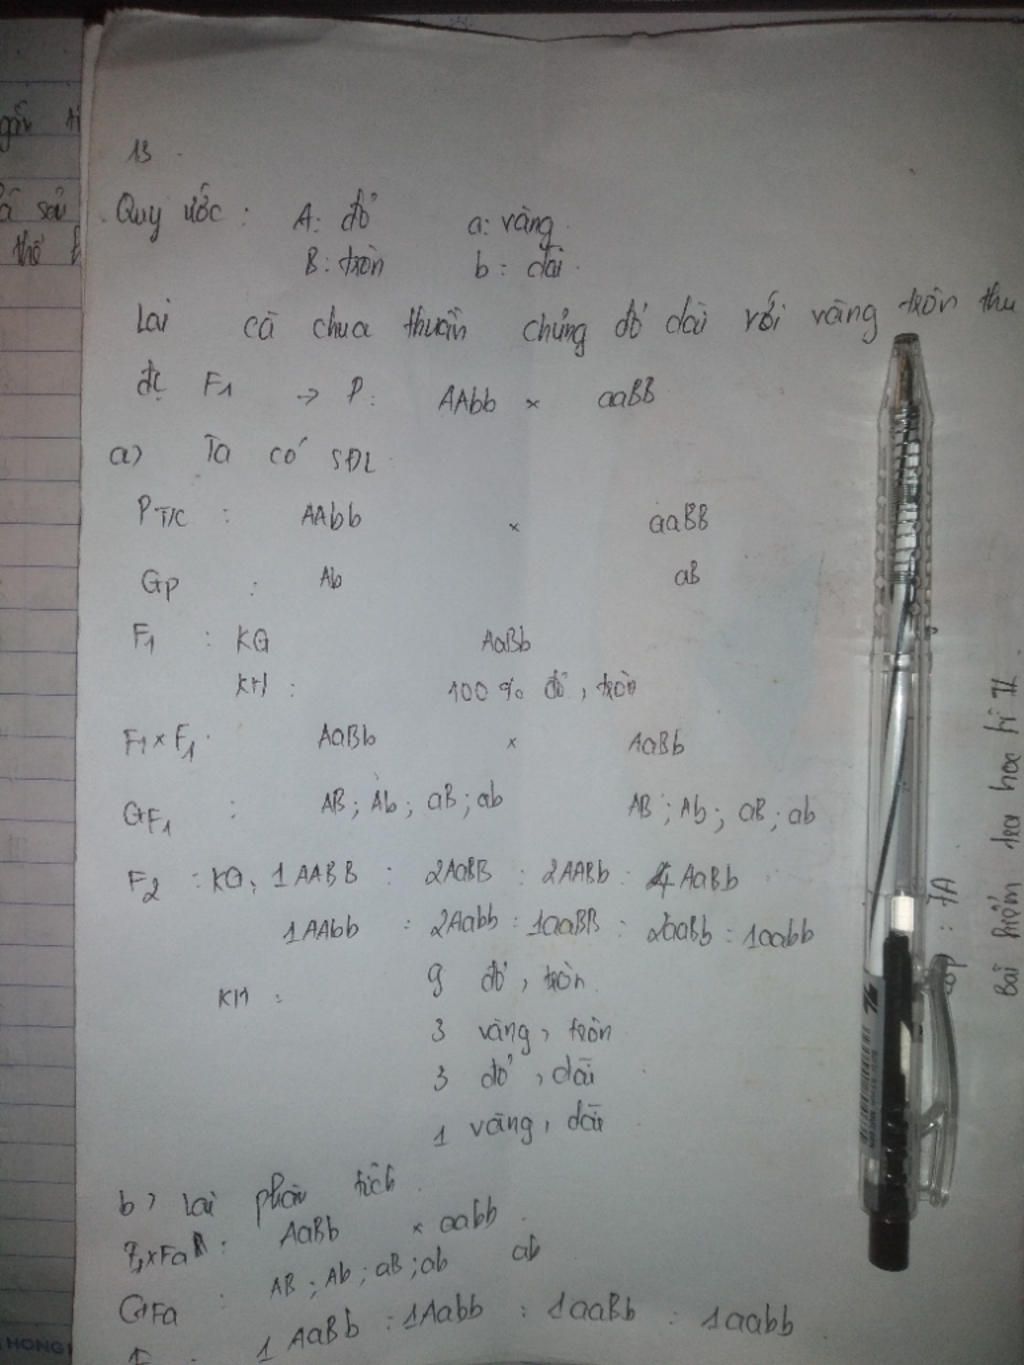 13
Quy ước : A: đỏ a: vàng
B: tròn b: dài
Lai cà chua thuần chủng đỏ dài với vàng tròn thu
đc F1 → P: AAbb × aaBB
a) Ta có SĐL
PT/C : AAbb × aaBB
Gp : Ab aB
F1 : KG AaBb
KH : 100% đỏ, tròn
F1 × F1 AaBb × AaBb
GF1 : AB ; Ab ; aB ; ab AB ; Ab ; aB ; ab
F2 : KG: 1AABB : 2AaBB : 2AABb : 4AaBb
1AAbb : 2Aabb : 1aaBB : 2aaBb : 1aabb
KH : 9 đỏ, tròn
3 vàng, tròn
3 đỏ, dài
1 vàng, dài
b) Lai phân tích
AaBb × aabb
GFa : AB ; Ab ; aB ; ab ab
1 AaBb : 1Aabb : 1aaBb : 1aabb
: 7A
HONG